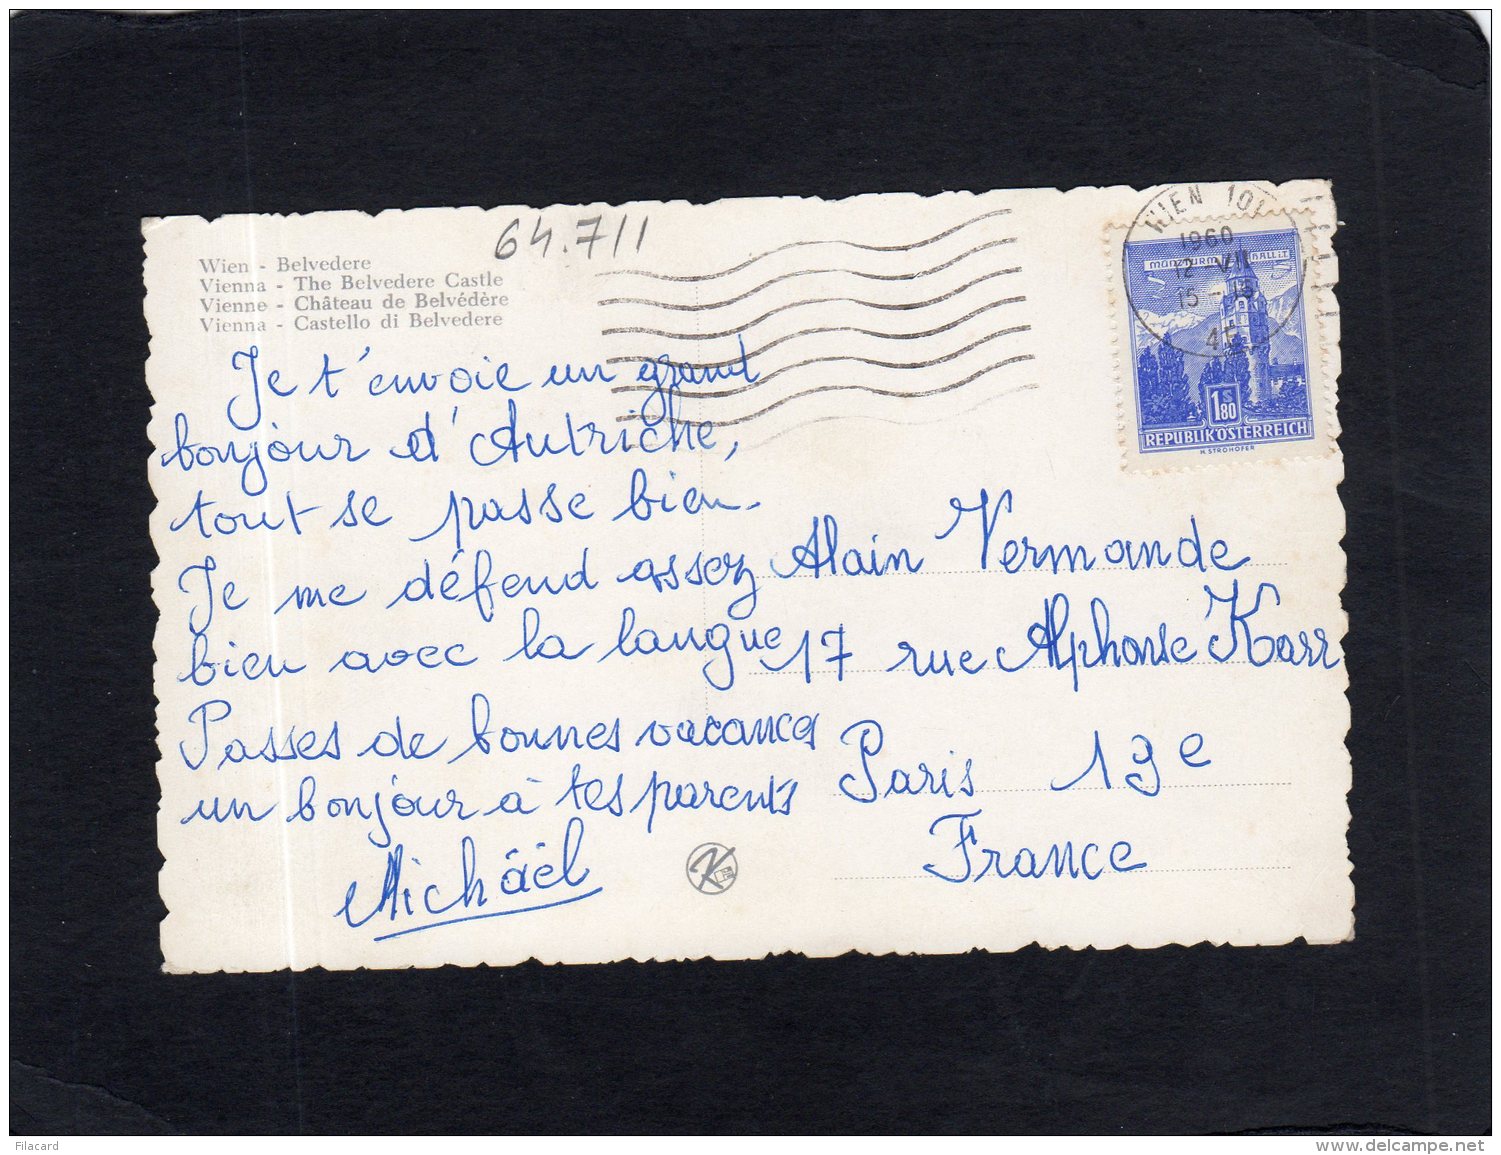 64.711
Wien - Belvedere
Vienna - The Belvedere Castle
Vienne - Château de Belvédère
Vienna - Castello di Belvedere
Je t'envoie un grand
bonjour d'Autriche,
tout se passe bien.
Je me défend assez
bien avec la langue
Passes de bonnes vacances
un bonjour à tes parents
Michäël
WIEN 101
1960
12 - VII
15 - 15
4E
MÜNZTURM HALL i.T.
1S 80
REPUBLIK ÖSTERREICH
H. STROHOFER
Alain Vermande
17 rue Alphonse Karr
Paris 19e
France
K
Filacard
www.delcampe.net